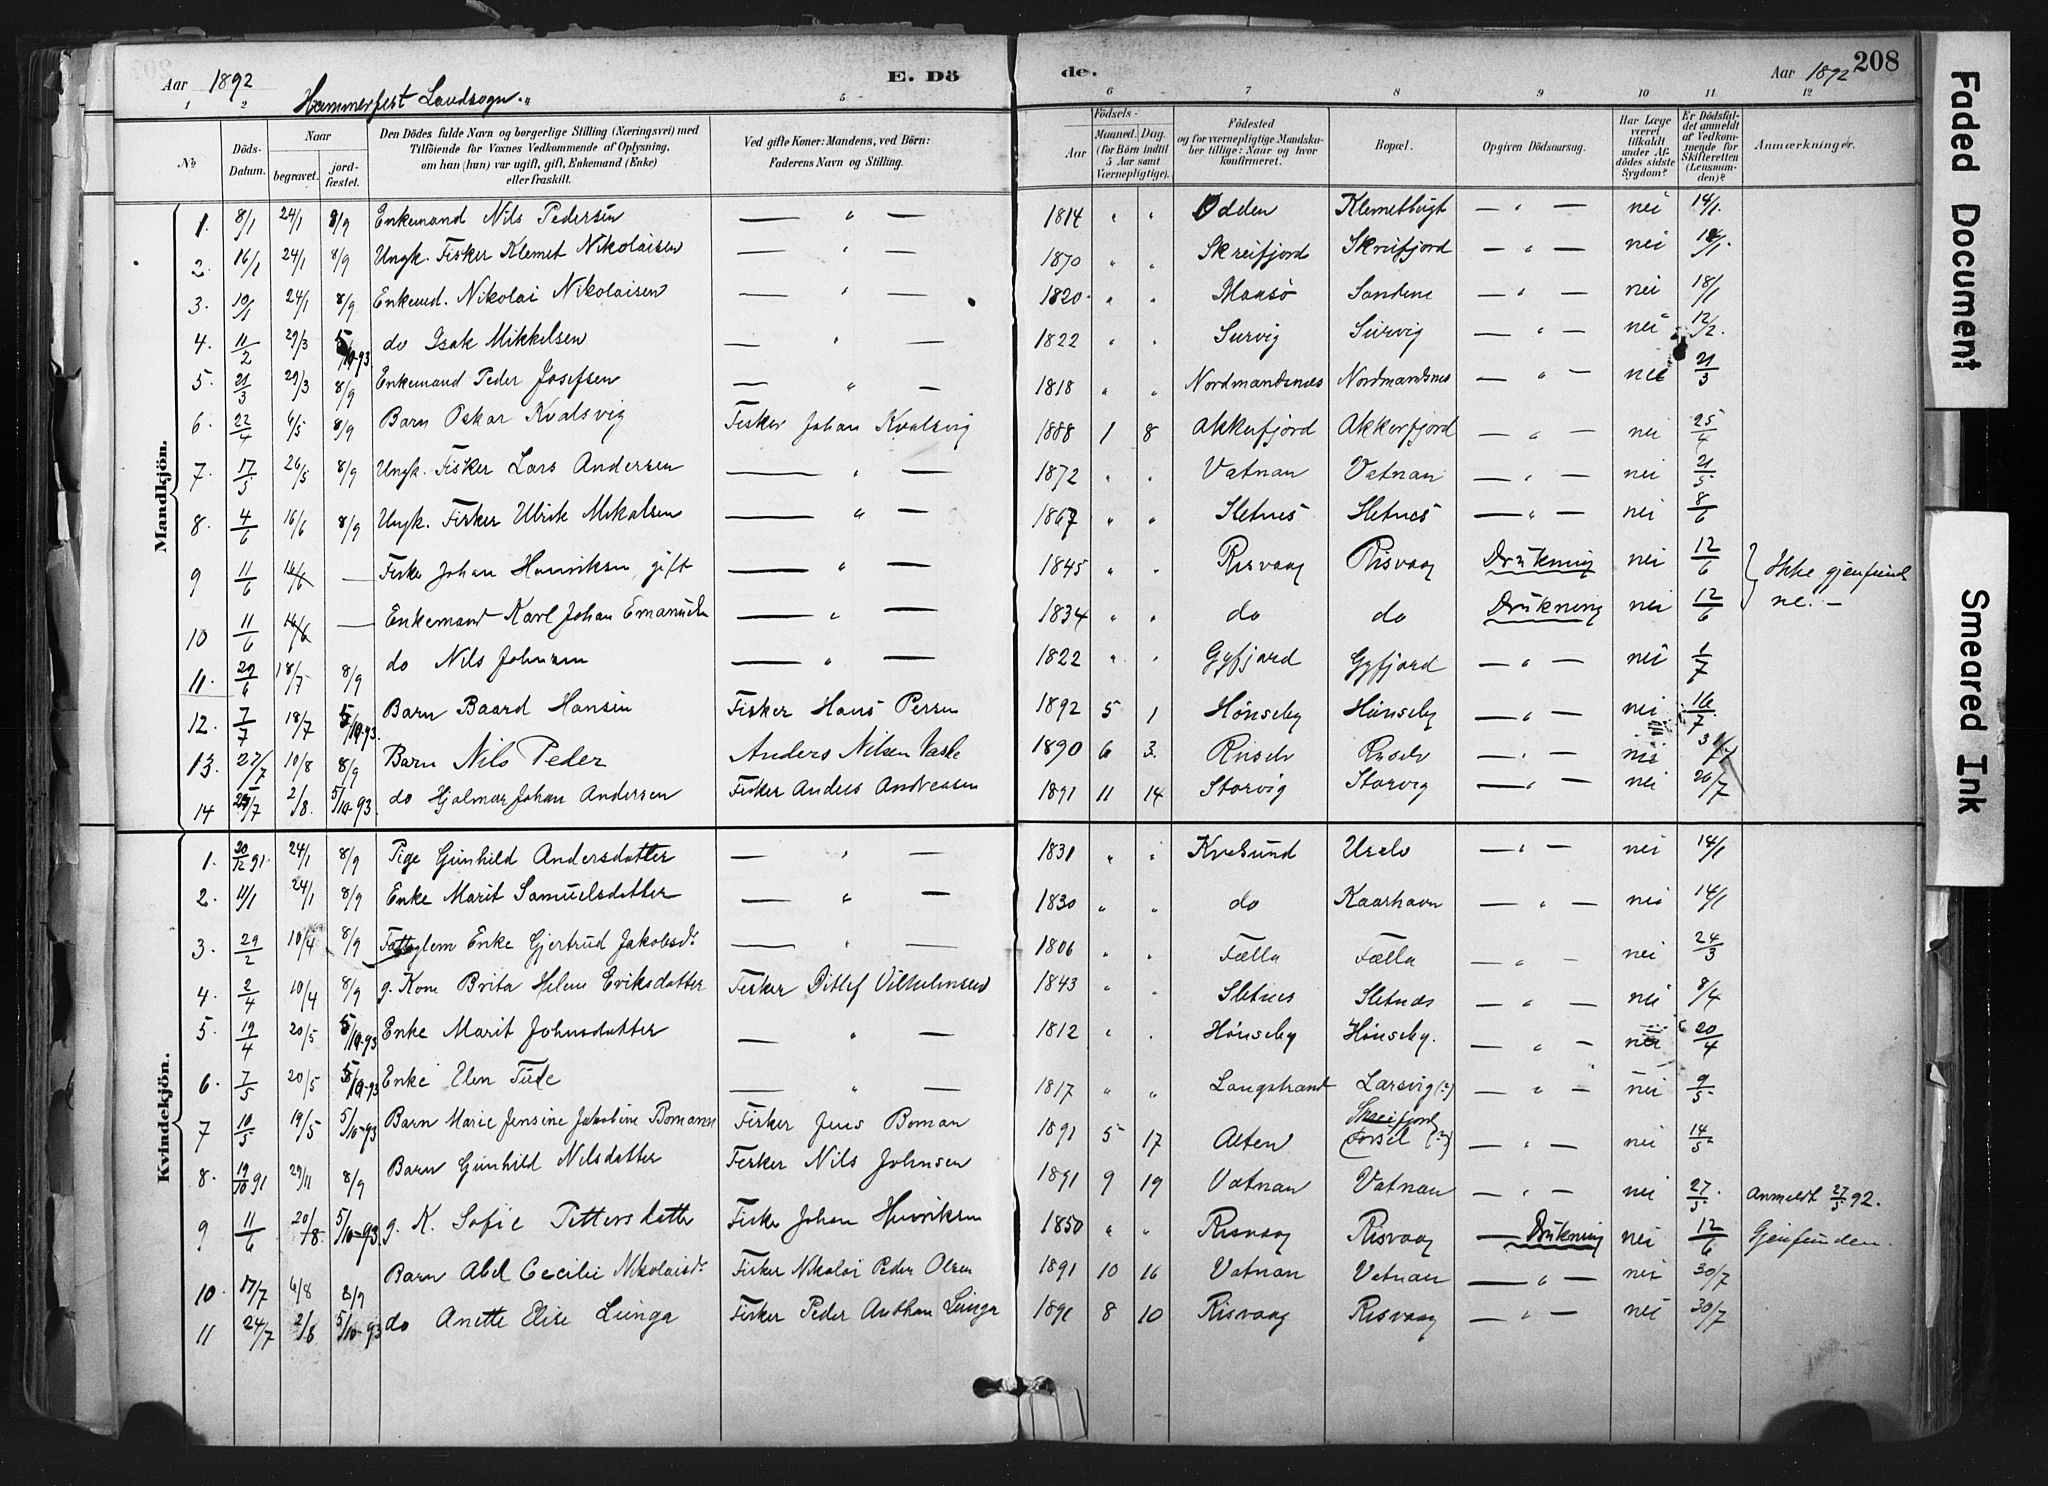 Aar 1892 Hammerfest Landsogn. E. Dö
de. Aar 1892 208
Faded Document
Smeared Ink
1 2 5 6 7 8 9 10 11 12
No
Döds-Datum.
Naar
begravet.
jord-fæstet.
Den Dödes fulde Navn og borgerlige Stilling (Næringsvei) med
Tilföiende for Voxnes Vedkommende af Oplysning,
om han (hun) var ugift, gift, Enkemand (Enke)
eller fraskilt.
Ved gifte Koner: Mandens, ved Börn:
Faderens Navn og Stilling.
Födsels-
Aar
Maaned. Dag.
(for Börn indtil
5 Aar samt
Værnepligtige).
Födested
og for værnepligtige Mandska-
ber tillige: Naar og hvor
konfirmeret.
Bopæl.
Opgiven Dödsaarsag.
Har Læge
været
tilkaldt
under Af-
dödes sidste
Sygdom?
Er Dödsfal-
det anmeldt
af Vedkom-
mende for
Skifteretten
(Lensman-
den)?
Anmærkninger.
Mandkjön.
1. 8/1 24/1 8/9 Enkemand Nils Pedersen — " — 1814 " " Odden Klemetbugt — " — nei 14/1.
2. 16/1 24/1 8/9 Ungk. Fisker Klemet Nikolaisen — " — 1870 " " Skreifjord Skreifjord — " — nei
3. 10/1 24/1 8/9 Enkemd. Nikolai Nikolaisen — " — 1820 " " Maasö Sandene — " — nei 18/1
4. 11/2 29/3 5/10-93 do Isak Mikkelsen — " — 1822 " " Survig Survig — " — nei 12/2.
5. 21/3 29/3 8/9 Enkemand Peder Josefsen — " — 1818 " " Nordmandsnes Nordmandsnes — " — nei 21/3
6. 22/4 6/5 8/9 Barn Oskar Kvalsvig Fisker Johan Kvalsvig 1888 1 8 Akkerfjord Akkerfjord — " — nei 25/4
7. 17/5 26/5 8/9 Ungk. Fisker Lars Andersen — " — 1872 " " Vatnan Vatnan — " — nei 21/5
8. 4/6 16/6 8/9 Ungk. Fisker Ulrik Mikalsen — " — 1867 " " Sletnes Sletnes — " — nei 8/6
9 11/6 16/6 — Fisker Johan Henriksen, gift — " — 1845 " " Risvaag Risvaag Drukning nei 12/6 Ikke gjenfund
10 11/6 16/6 — Enkemand Karl Johan Emanuels — " — 1834 " " do do Drukning nei 12/6 ne. —
11. 29/6 18/7 8/9 do Nils Johnsen — " — 1822 " " Gyfjord Gyfjord — " — nei 1/7
12. 7/7 18/7 5/10-93. Barn Baard Hansen Fisker Hans Persen 1892 5 1 Hönseby Hönseby — " — nei 16/7
13. 27/7 10/8 8/9 Barn Nils Peder Anders Nilsen Vaske 1890 6 3. Riselv Riselv — " — nei 31/7
14 25/7 2/8. 5/10-93 do Hjalmar Johan Andersen Fisker Anders Andreasen 1891 11 14 Storvig Storvig — " — nei 26/7
Kvindekjön.
1. 20/12 91. 24/1 8/9 Pige Gunhild Andersdatter — " — 1831 " " Kvalsund — " — nei 14/1
2. 11/1 24/1 8/9 Enke Marit Samuelsdatter — " — 1830 " " do Kaarhavn — " — nei 14/1
3. 29/2 10/4 8/9 Fattiglem Enke Gjertrud Jakobsdr. — " — 1806 " " Fælla Fælla — " — nei 24/3
4. 2/4 10/4 8/9 g. Kone Brita Helene Eriksdatter Fisker Ditlef Vilhelmsen 1843 " " Sletnes Sletnes — " — nei 8/4
5. 19/4 20/5 5/10-93 Enke Marit Johnsdatter — " — 1812 " " Hönseby Hönseby. — " — nei 20/4
6. 7/5 20/5 5/10-93 Enke Elen — " — 1817 " " Langstrand Larsvig (?) — " — nei 9/5
7 10/5 19/5 5/10-93 Barn Marie Jensine Jakobine Bomann Fisker Jens Boman 1891 5 17 Alten Skreifjord Forsöl (?) — " — nei 14/5
8. 19/10 91 29/11 8/9 Barn Gunhild Nilsdatter Fisker Nils Johnsen 1891 9 19 Vatnan Vatnan — " — nei 27/5. Anmeldt 27/5 92.
9 11/6 20/8. 5/10-93 g. K. Sofie Pettersdatter Fisker Johan Henriksen 1850 " " Risvaag Risvaag — Drukning nei 12/6 Gjenfunden.
10. 17/7 6/8 8/9 Barn Abel Cecilie Nikolaisdr. Fisker Nikolai Peder Olsen 1891 10 16 Vatnan Vatnan — " — nei 30/7
11 24/7 2/8 5/10-93 do Anette Elise Lunga Fisker Peder Anthon Lunga 1891 8 10 Risvaag Risvaag — " — nei 30/7